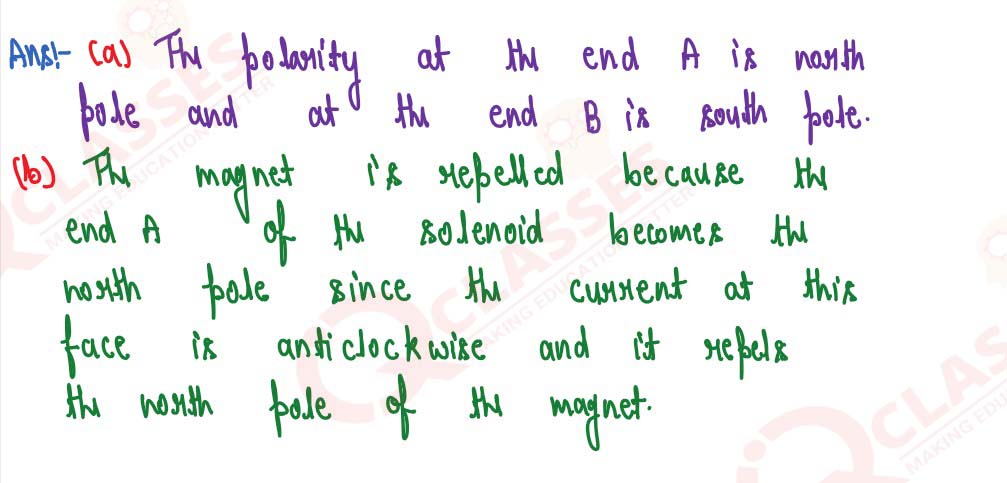 Ans:- (a) The polarity at the end A is north
pole and at the end B is south pole.
(b) The magnet is repelled because the
end A of the solenoid becomes the
north pole since the current at this
face is anticlockwise and it repels
the north pole of the magnet.
CLASSES
MAKING EDUCATION
CLASSES
MAKING EDUCATION
CLASSES
MAKING EDU